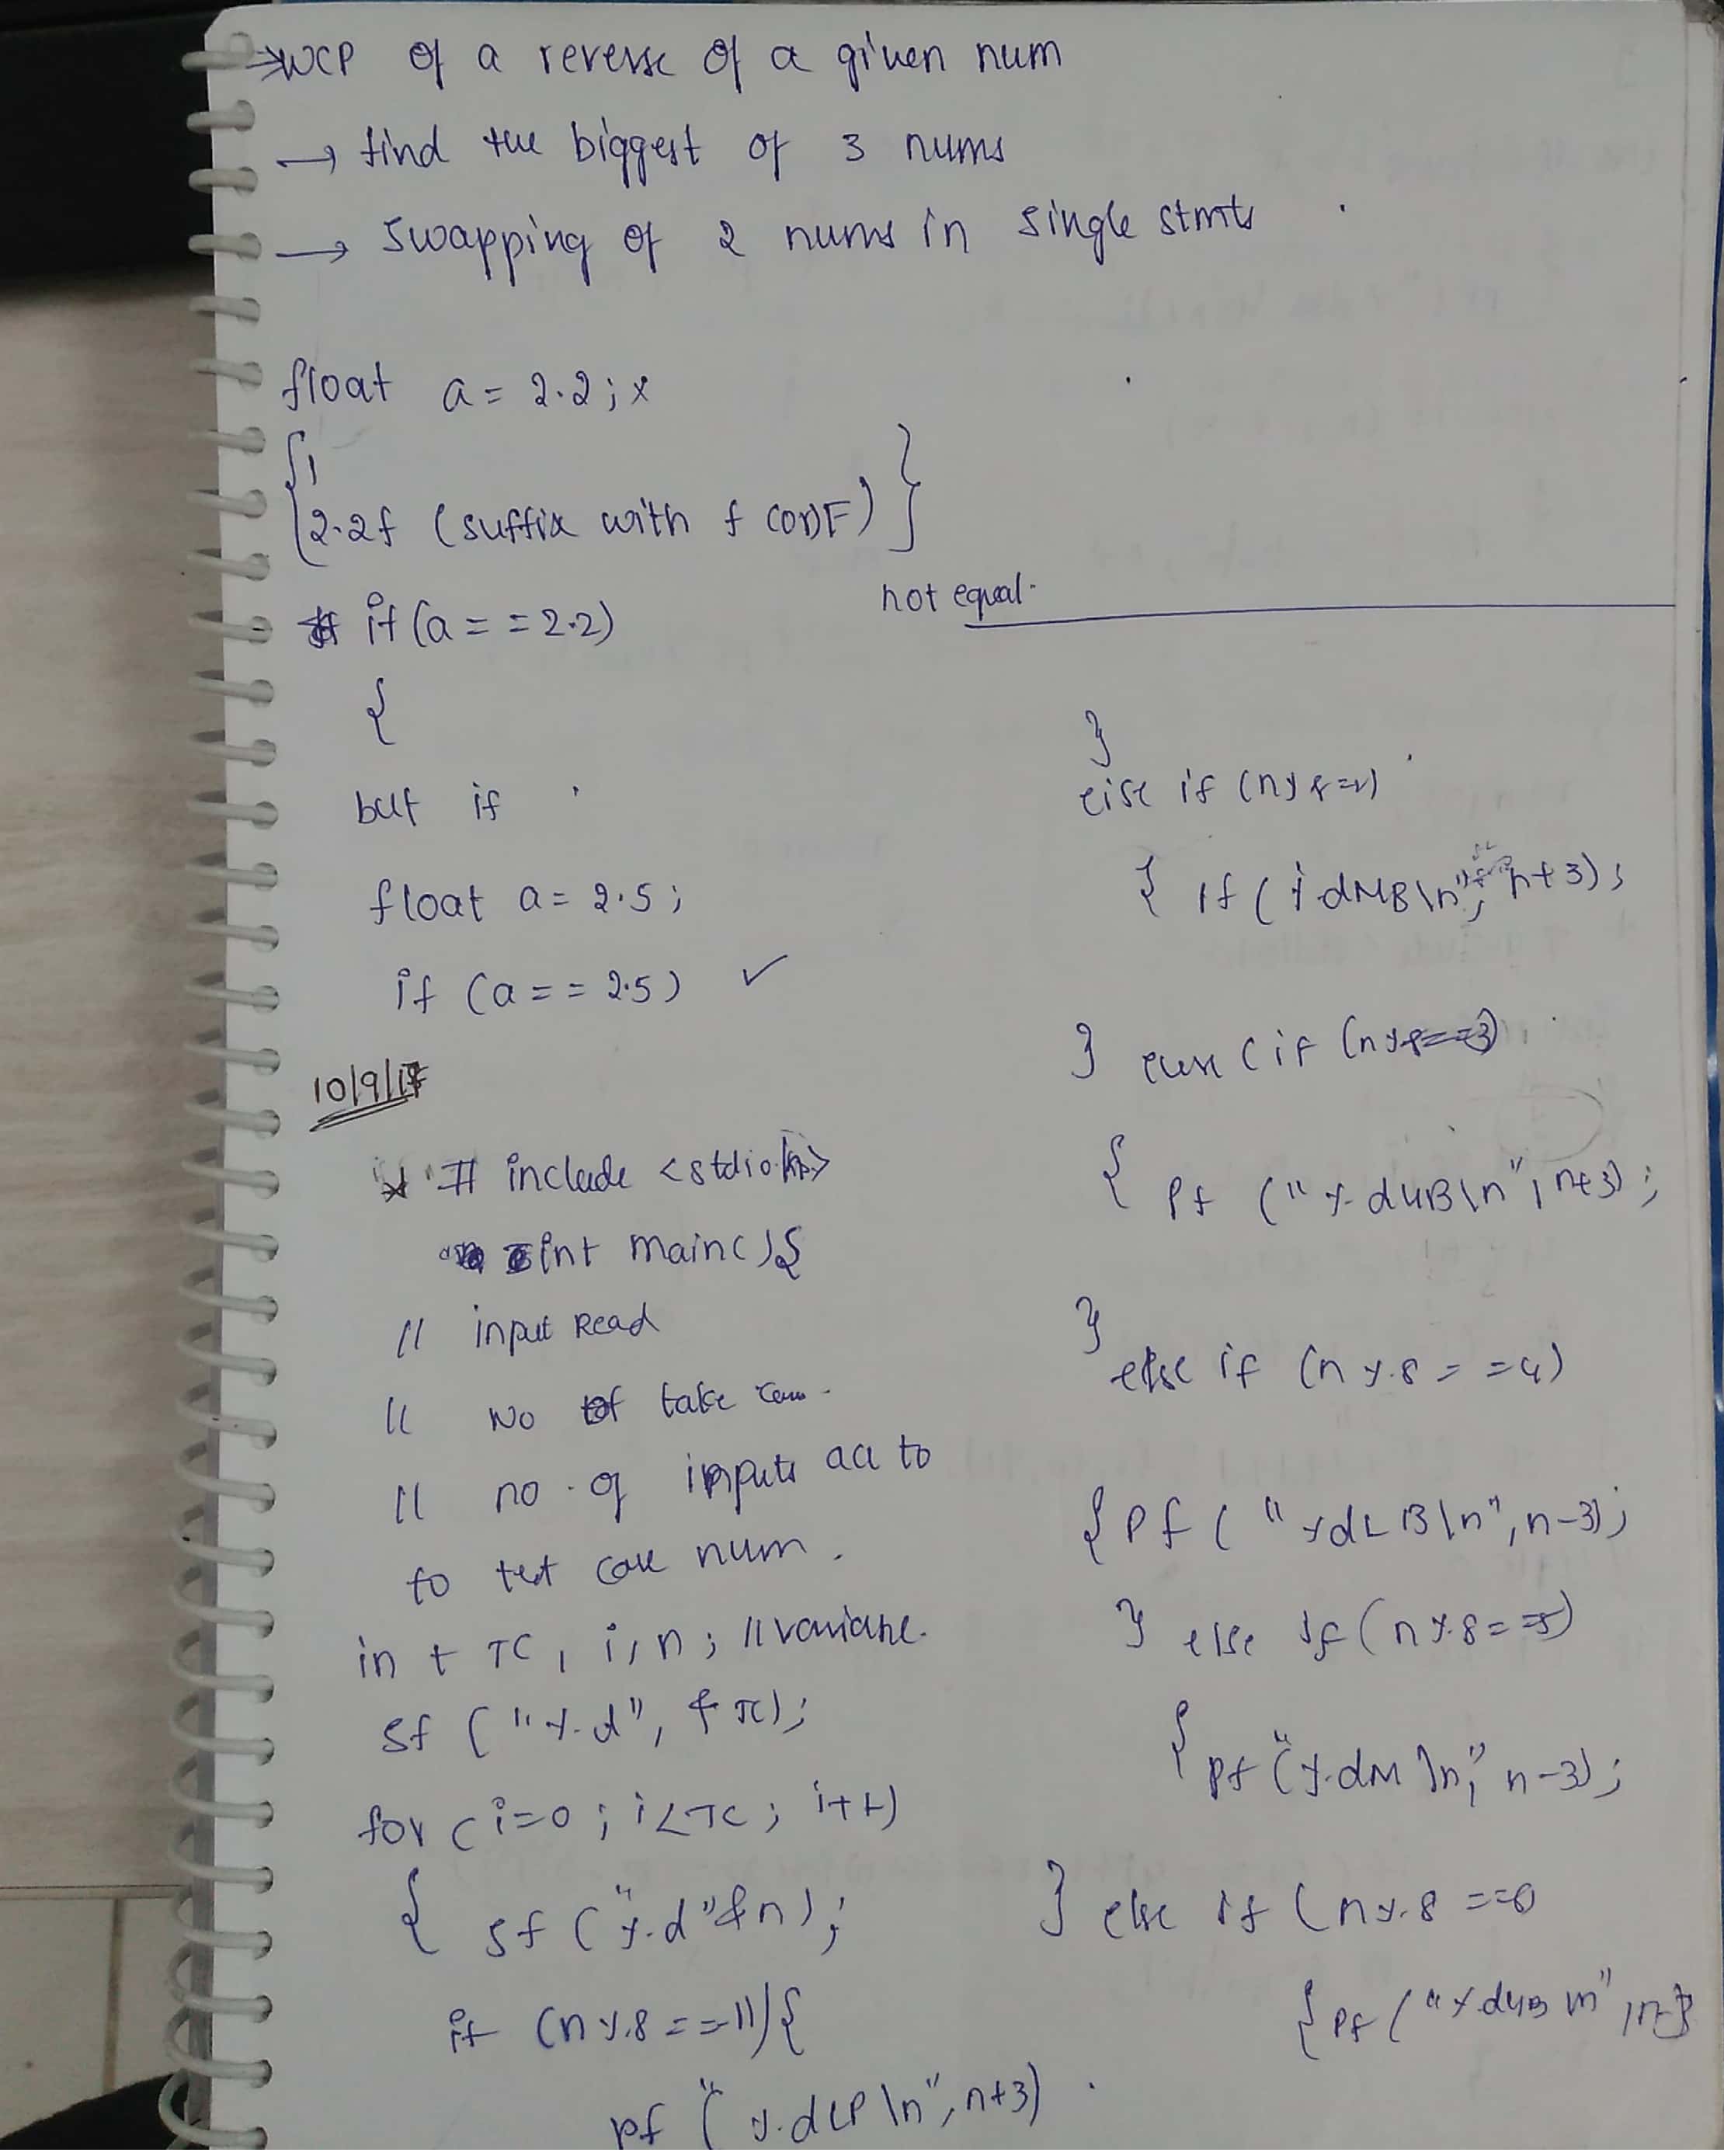 → WCP of a reverse of a given num
→ find the biggest of 3 nums
→ swapping of 2 nums in single stmts
float a = 2.2 ; x
2.2f (suffix with f (or) F)
if (a = = 2.2)
not equal.
{
but if
float a = 2.5 ;
if (a = = 2.5) ✓
10/9/17
# include <stdio.h>
int main( ) {
// input Read
// No of take
// no. of inputs acc to
to test case num.
int TC, i, n ; // variable.
sf ("%d", &TC);
for ( i=0 ; i<TC ; i++)
{ sf ("%d" &n) ;
if (n%8 == 1) {
pf ("%dLB \n", n+3)
}
else if (n%8=2)
{ pf ( %dMB\n", n+3) ;
} else ( if (n%8==3)
{ pf ("%dUB\n", n+3) ;
}
else if (n%8 = =4)
{ pf ("%dLB\n", n-3) ;
} else if (n%8= =5)
{ pf ("%dM \n," n-3) ;
} else if (n%8 ==0
{ pf ("%dUB \n"